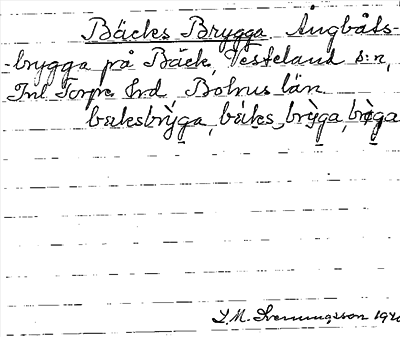 Bäcks Brygga Ångbåts-
-brygga på Bäck, Vesteland s:n,
Inl Torpe hrd Bohus län.
bæksbrỳga, bæks brỳga, brø̀ga
S. M. Svenningsson